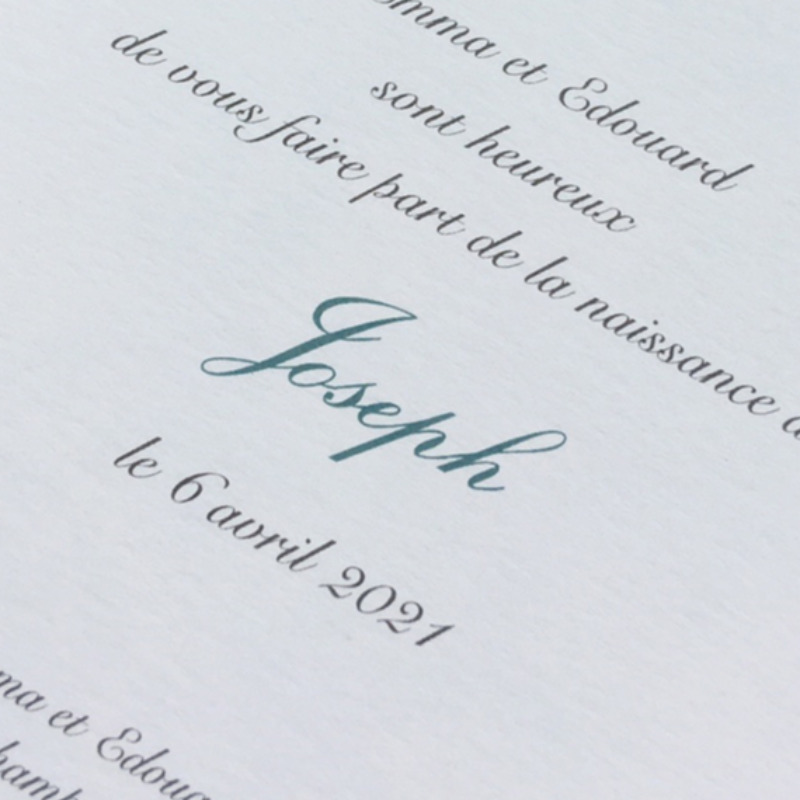 et Edouard
sont heureux
de vous faire part de la naissance
Joseph
le 6 avril 2021
et